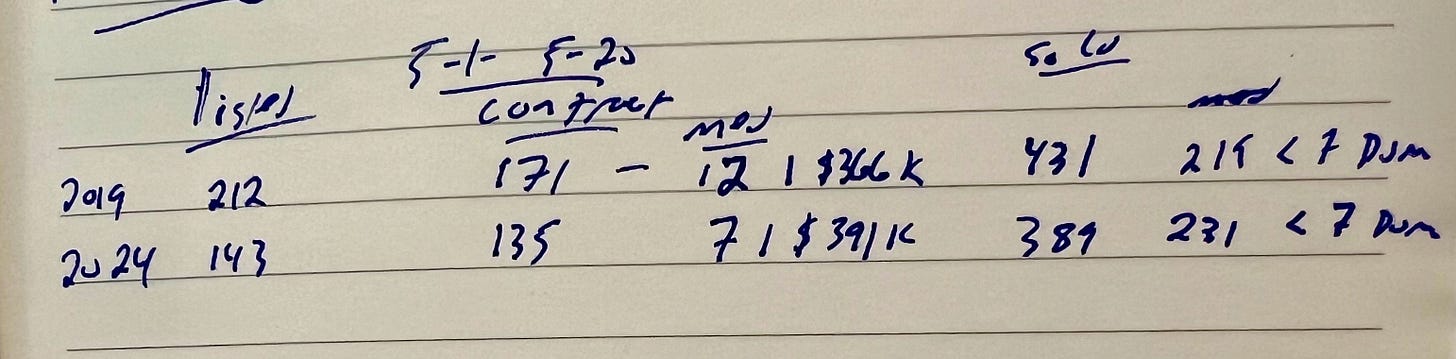 5-1- 5-20 Sold
listed contract med
2019 212 171 - 12 | $366K 431 219 < 7 DOM
2024 143 135 7 | $391K 389 231 < 7 DOM